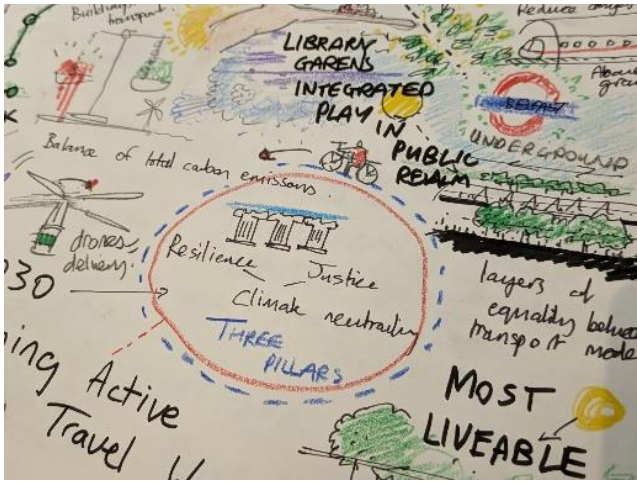 Building
transport.
Reduce
LIBRARY
GARENS
INTEGRATED
PLAY IN
PUBLIC
REALM
BELFAST
UNDERGROUND
Balance of total carbon emissions.
drones
delivery.
030
Resilience
Justice
Climate neutrality
THREE
PILLARS
layers of
equality between
transport mode
ning Active
Travel
MOST
LIVEABLE